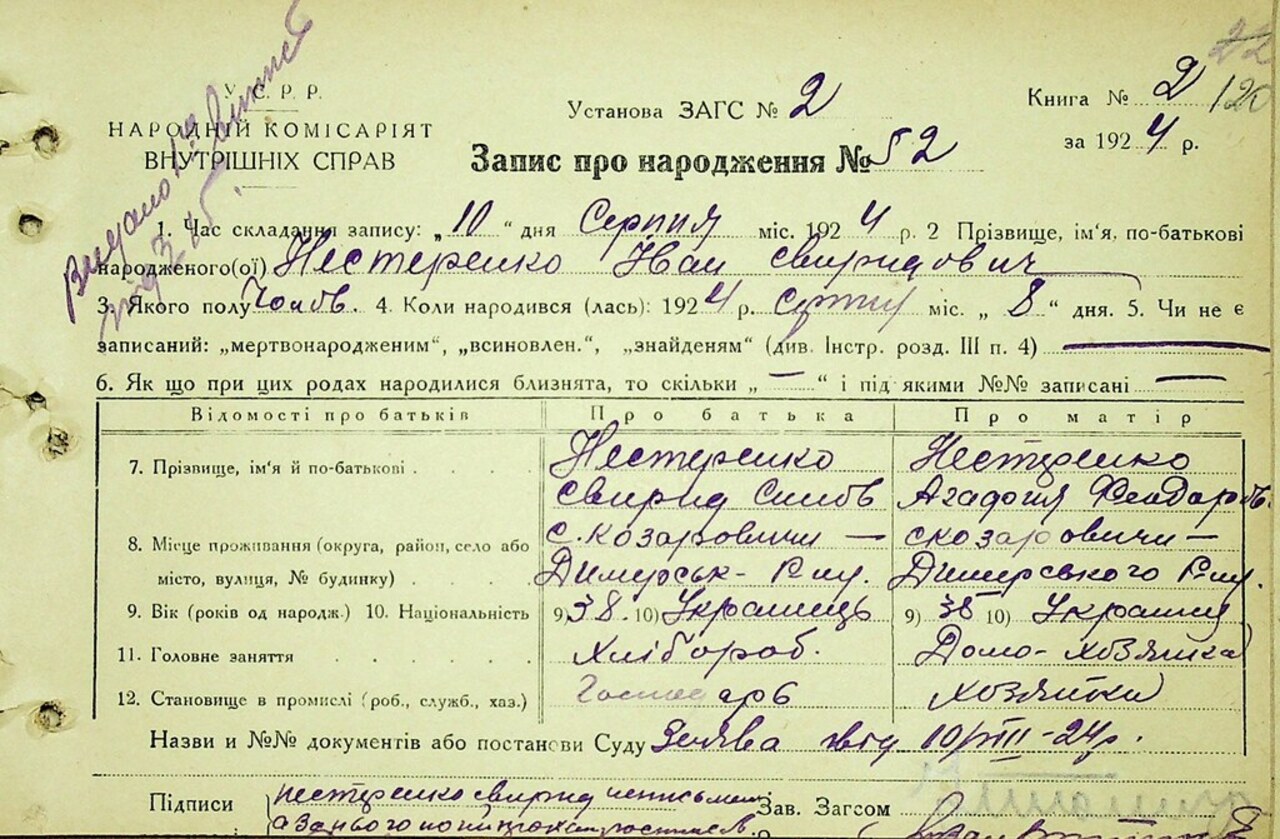 22
120
У. С. Р. Р.
НАРОДНІЙ КОМІСАРІЯТ
ВНУТРІШНІХ СПРАВ
Установа ЗАГС № 2
Книга № 2
за 1924 р.
Запис про народження № 52
Видано
1. Час складання запису: „10“ дня Серпня міс. 1924 р. 2 Прізвище, ім'я, по-батькові
народженого(ої) Нестеренко Іван Свиридович
3. Якого полу Чолов. 4. Коли народився (лась): 1924 р. Серпня міс. „8“ дня. 5. Чи не є
записаний: „мертвонародженим“, „всиновлен.“, „знайденям“ (див. Інстр. розд. III п. 4)
6. Як що при цих родах народилися близнята, то скільки „—“ і під якими №№ записані —
Відомості про батьків Про батька Про матір
7. Прізвище, ім'я й по-батькові Нестеренко Нестеренко
Свирид Агафия Феодоров.
8. Місце проживання (округа, район, село або с. Козаровичи — с Козаровичи —
місто, вулиця, № будинку) Димерськ- Димерського
9. Вік (років од народж.) 10. Національність 9) 38. 10) Українець 9) 38 10) Украинка
11. Головне заняття Хлібороб. Домо-хозяйка
12. Становище в промислі (роб., служб., хаз.) Господарь хозяйка
Назви и №№ документів або постанови Суду Заява від 10/VIII-24 р.
Підписи Нестеренко Свирид Зав. Загсом
а за нього